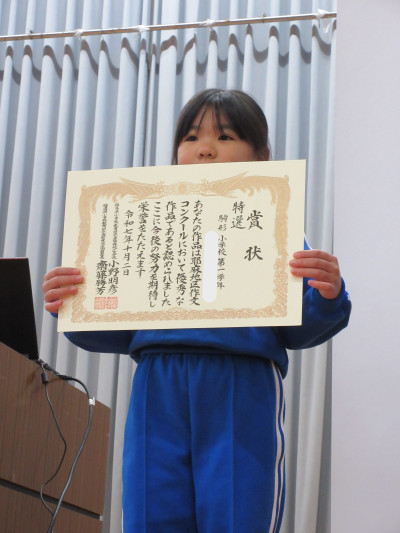 賞状
特選
駒形小学校 第一学年
あなたの作品は耶麻地区作文
コンクールにおいて優秀な
作品であると認められました
ここに今後の努力を期待し
栄誉をたたえます
令和七年十月二日
小野明彦
齋藤勝芳